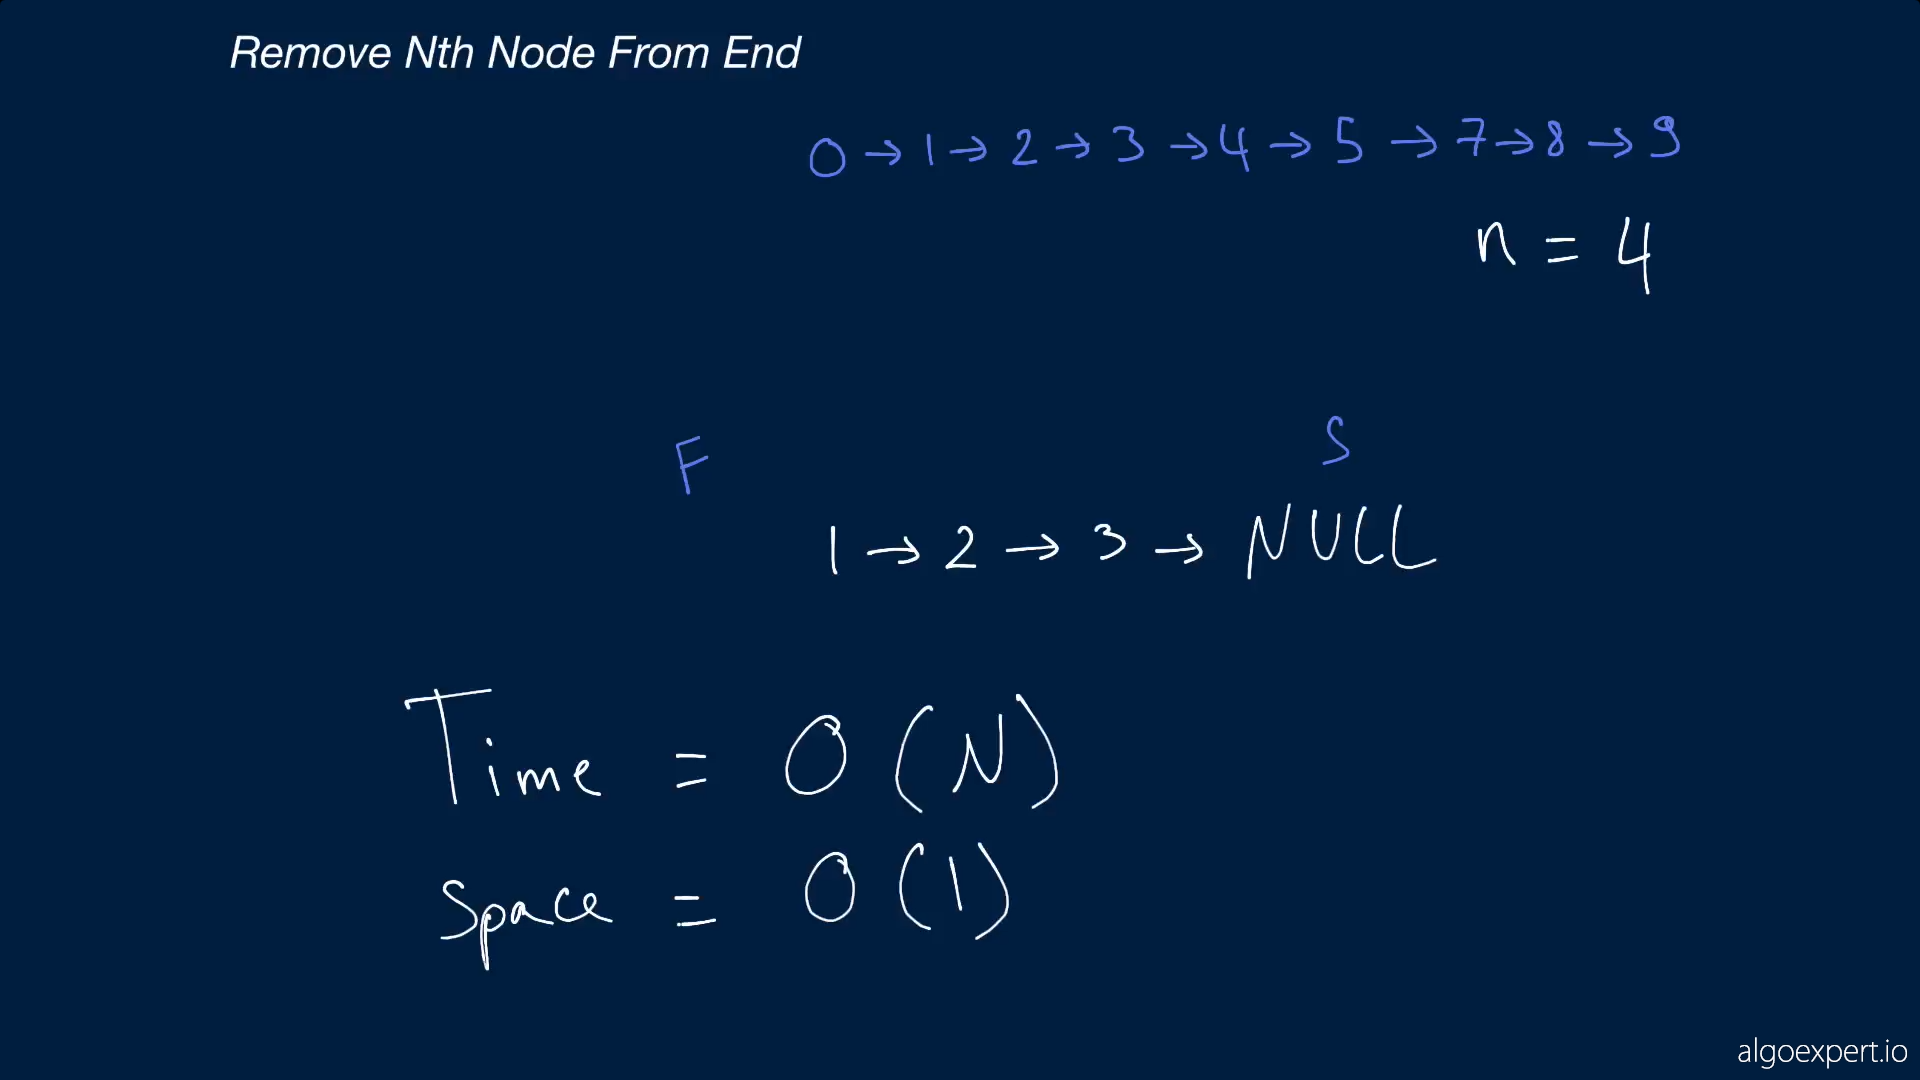 Remove Nth Node From End
0 → 1 → 2 → 3 → 4 → 5 → 7 → 8 → 9
n = 4
F S
1 → 2 → 3 → NULL
Time = O(N)
Space = O(1)
algoexpert.io